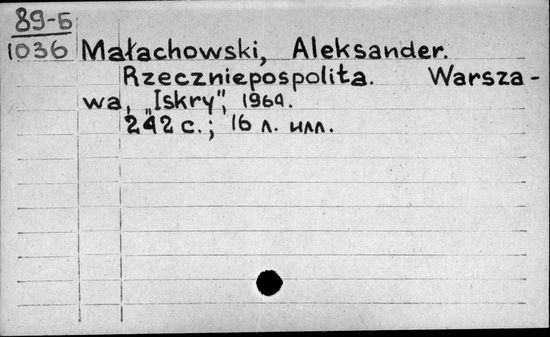 89-Б
1036
Małachowski, Aleksander.
Rzeczniepospolita. Warsza-
wa, „Iskry", 1964.
242 с.; 16 л. илл.